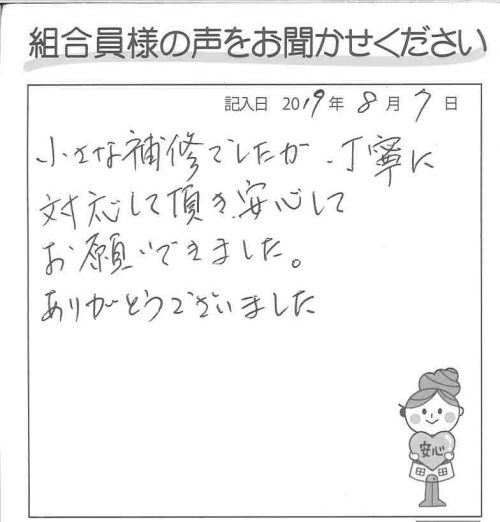 組合員様の声をお聞かせください
記入日 2019年 8月 7日
小さな補修でしたが、丁寧に
対応して頂き、安心して
お願いできました。
ありがとうございました
安心